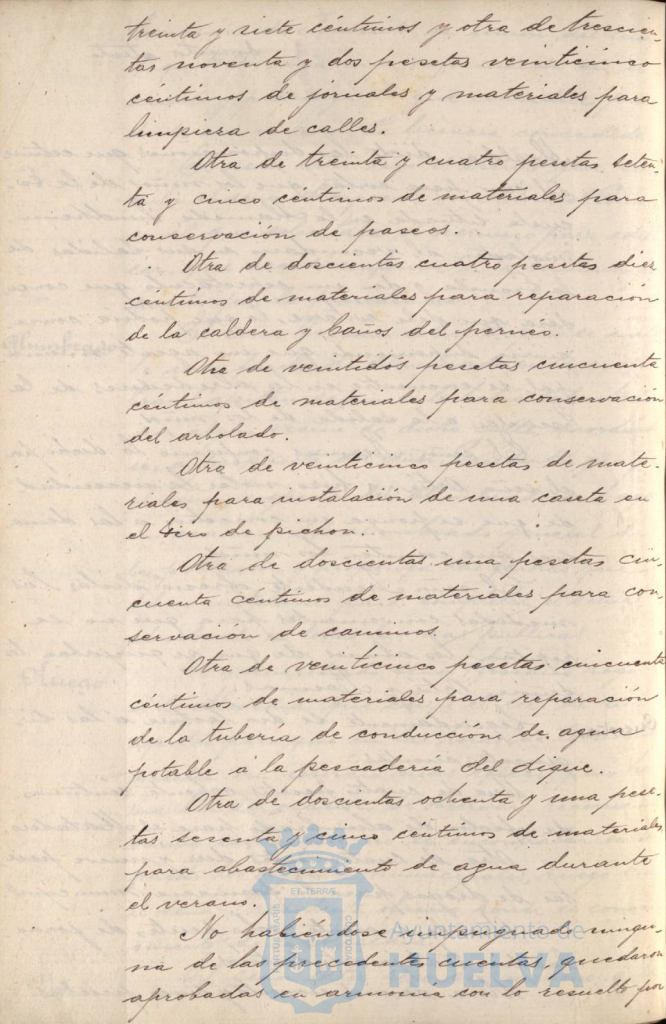 treinta y siete céntimos y otra de trescien-
tas noventa y dos pesetas veinticinco
céntimos de jornales y materiales para
limpieza de calles.
Otra de treinta y cuatro pesetas seten-
ta y cinco céntimos de materiales para
conservación de paseos.
Otra de doscientas cuatro pesetas diez
céntimos de materiales para reparación
de la caldera y baños del perneo.
Otra de veintidós pesetas cincuenta
céntimos de materiales para conservación
del arbolado.
Otra de veinticinco pesetas de mate-
riales para instalación de una caseta en
el tiro de pichon.
Otra de doscientas una pesetas cin-
cuenta céntimos de materiales para con-
servación de caminos.
Otra de veinticinco pesetas cincuenta
céntimos de materiales para reparación
de la tubería de conducción de agua
potable á la pescadería del dique.
Otra de doscientas ochenta y una pese-
tas sesenta y cinco céntimos de materiales
para abastecimiento de agua durante
el verano.
No habiéndose impugnado ningu-
na de las precedentes cuentas, quedaron
aprobadas en armonia con lo resuelto por
Ayuntamiento de
HUELVA